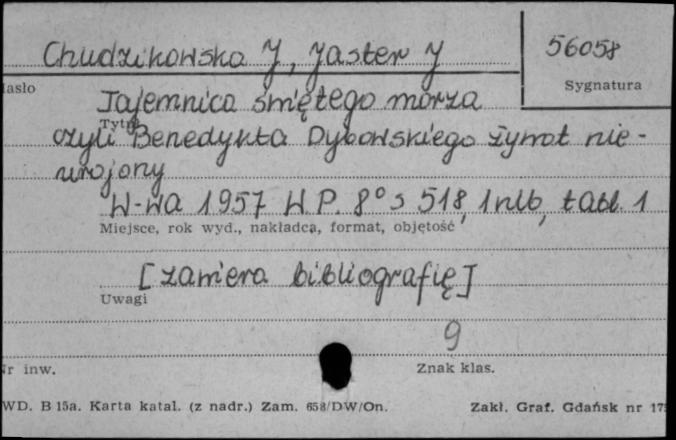 Chudzikowska J, Jaster J
56058
asło
Sygnatura
Tajemnica świętego morza
Tytuł
czyli Benedykta Dybowskiego żywot nie-
urojony
W-wa 1957 W P. 8° s 518, 1 nlb, tabl. 1
Miejsce, rok wyd., nakładca, format, objętość
[zawiera bibliografię]
Uwagi
9
r inw.
Znak klas.
WD. B 15a. Karta katal. (z nadr.) Zam. 658/DW/On.
Zakł. Graf. Gdańsk nr 175